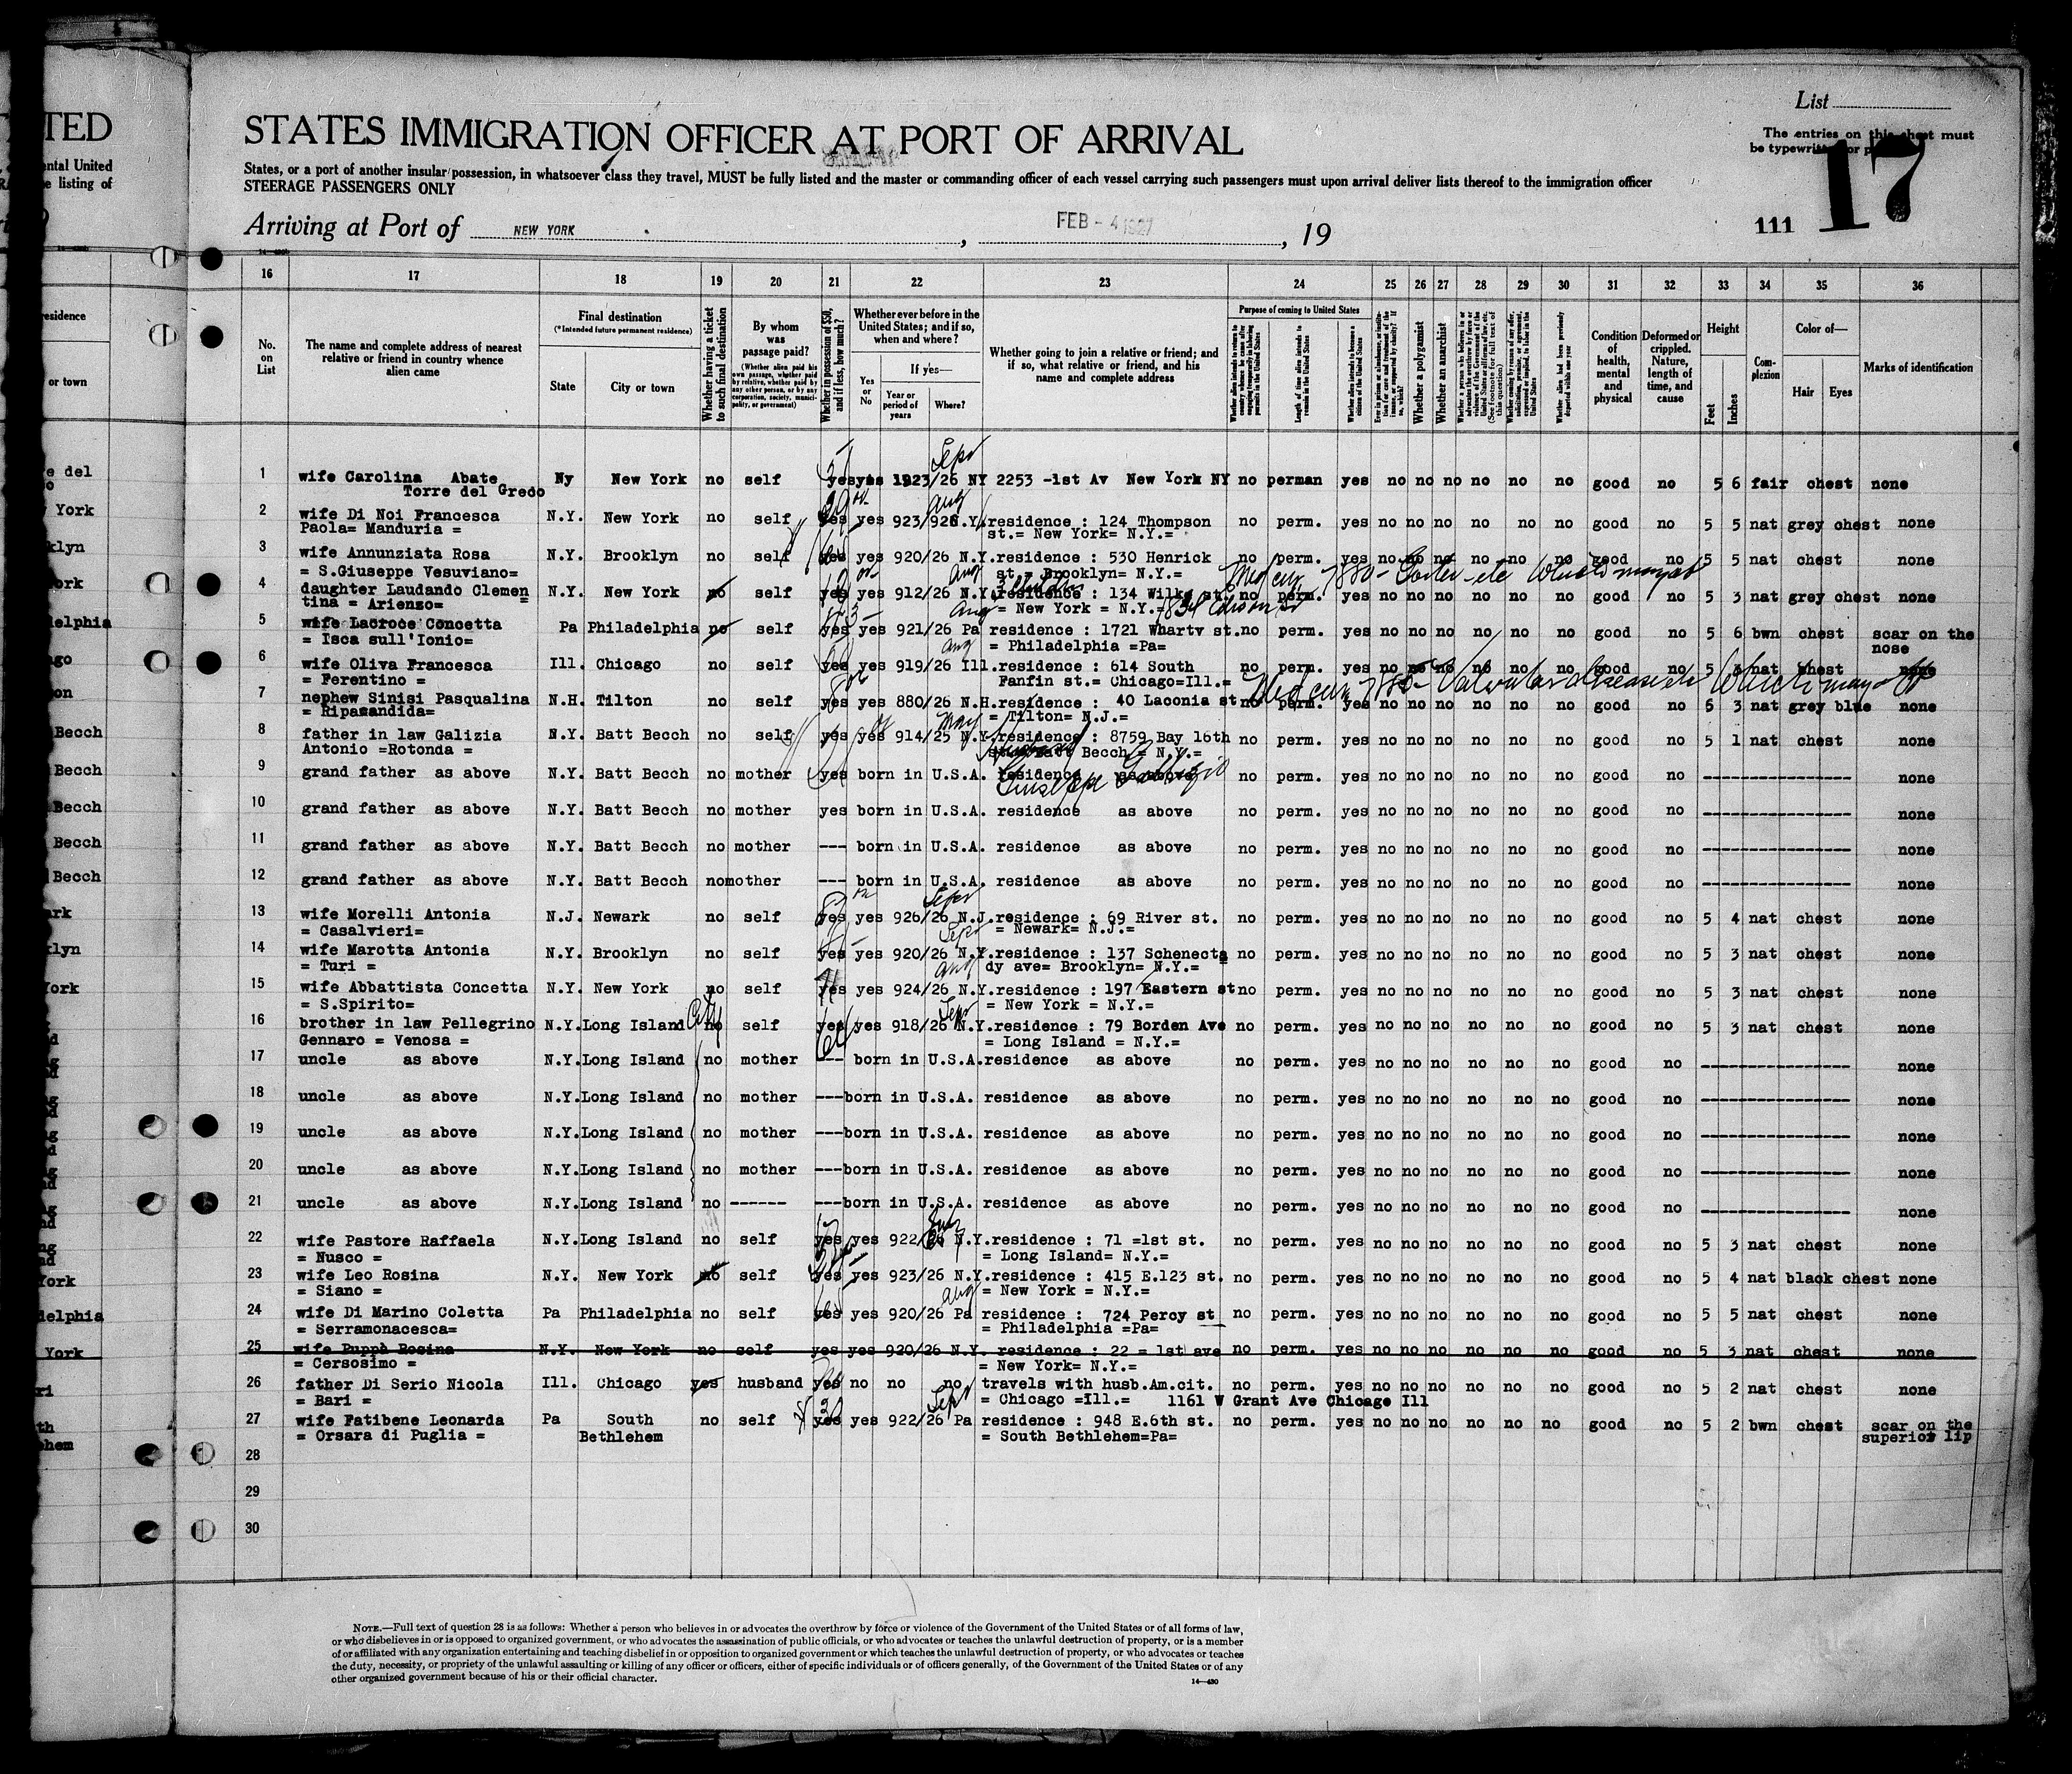 TED
ental United
e listing of
List
The entries on this sheet must
be typewritten or p
17
111
STATES IMMIGRATION OFFICER AT PORT OF ARRIVAL
States, or a port of another insular possession, in whatsoever class they travel, MUST be fully listed and the master or commanding officer of each vessel carrying such passengers must upon arrival deliver lists thereof to the immigration officer
STEERAGE PASSENGERS ONLY
Arriving at Port of NEW YORK , FEB - 4 1927 , 19
16 17 18 19 20 21 22 23 24 25 26 27 28 29 30 31 32 33 34 35 36
No. on List
The name and complete address of nearest relative or friend in country whence alien came
Final destination
(*Intended future permanent residence)
State
City or town
Whether having a ticket to such final destination
By whom was passage paid?
(Whether alien paid his own passage, whether paid by relative, whether paid by any other person, or by any corporation, society, municipality, or government)
Whether in possession of $50, and if less, how much?
Whether ever before in the United States; and if so, when and where?
Yes or No
If yes—
Year or period of years
Where?
Whether going to join a relative or friend; and if so, what relative or friend, and his name and complete address
Purpose of coming to United States
Length of time alien intends to remain in the United States
Whether alien intends to become a citizen of the United States
Whether a polygamist
Whether an anarchist
Condition of health, mental and physical
Deformed or crippled. Nature, length of time, and cause
Height
Feet
Inches
Complexion
Color of—
Hair
Eyes
Marks of identification
1 wife Carolina Abate Ny New York no self yes yes 1923/26 NY 2253 -1st Av New York NY no perman yes no no no no no no good no 5 6 fair chest none
Torre del Gredo
2 wife Di Noi Francesca N.Y. New York no self yes yes 923/926 N.Y. residence : 124 Thompson no perm. yes no no no no no no good no 5 5 nat grey chest none
Paola= Manduria = st.= New York= N.Y.=
3 wife Annunziata Rosa N.Y. Brooklyn no self yes yes 920/26 N.Y. residence : 530 Henrick no perm. yes no no no no no no good no 5 5 nat chest none
= S.Giuseppe Vesuviano= st.= Brooklyn= N.Y.=
4 daughter Laudando Clemen N.Y. New York no self yes yes 912/26 N.Y. residence : 134 Wilk st. no perm. yes no no no no no no good no 5 3 nat grey chest none
tina = Arienzo= = New York = N.Y.=
5 wife Lacroce Concetta Pa Philadelphia no self yes yes 921/26 Pa residence : 1721 Whartv st. no perm. yes no no no no no no good no 5 6 bwn chest scar on the
= Isca sull'Ionio= = Philadelphia =Pa= nose
6 wife Oliva Francesca Ill. Chicago no self yes yes 919/26 Ill. residence : 614 South no perm. yes no no no no no no good no 5 3 nat chest none
= Ferentino = Fanfin st.= Chicago=Ill.=
7 nephew Sinisi Pasqualina N.H. Tilton no self yes yes 880/26 N.H. residence : 40 Laconia st no perm. yes no no no no no no good no 5 3 nat grey blue none
= Ripacandida= = Tilton= N.J.=
8 father in law Galizia N.Y. Batt Becch no self yes yes 914/25 N.Y. residence : 8759 Bay 16th no perm. yes no no no no no no good no 5 1 nat chest none
Antonio =Rotonda = Batt Becch = N.Y.=
9 grand father as above N.Y. Batt Becch no mother yes born in U.S.A. residence as above no perm. yes no no no no no no good no ---------------- none
10 grand father as above N.Y. Batt Becch no mother yes born in U.S.A. residence as above no perm. yes no no no no no no good no ---------------- none
11 grand father as above N.Y. Batt Becch no mother --- born in U.S.A. residence as above no perm. yes no no no no no no good no ---------------- none
12 grand father as above N.Y. Batt Becch no mother --- born in U.S.A. residence as above no perm. yes no no no no no no good no ---------------- none
13 wife Morelli Antonia N.J. Newark no self yes yes 926/26 N.J. residence : 69 River st. no perm. yes no no no no no no good no 5 4 nat chest none
= Casalvieri= = Newark= N.J.=
14 wife Marotta Antonia N.Y. Brooklyn no self yes yes 920/26 N.Y. residence : 137 Schenecta no perm. yes no no no no no no good no 5 3 nat chest none
= Turi = dy ave= Brooklyn= N.Y.=
15 wife Abbattista Concetta N.Y. New York no self yes yes 924/26 N.Y. residence : 197 Eastern st no perm. yes no no no no no no good no 5 3 nat chest none
= S.Spirito= = New York = N.Y.=
16 brother in law Pellegrino N.Y. Long Island no self yes yes 918/26 N.Y. residence : 79 Borden Ave no perm. yes no no no no no no good no 5 3 nat chest none
Gennaro = Venosa = = Long Island = N.Y.=
17 uncle as above N.Y. Long Island no mother --- born in U.S.A. residence as above no perm. yes no no no no no no good no ---------------- none
18 uncle as above N.Y. Long Island no mother --- born in U.S.A. residence as above no perm. yes no no no no no no good no ---------------- none
19 uncle as above N.Y. Long Island no mother --- born in U.S.A. residence as above no perm. yes no no no no no no good no ---------------- none
20 uncle as above N.Y. Long Island no mother --- born in U.S.A. residence as above no perm. yes no no no no no no good no ---------------- none
21 uncle as above N.Y. Long Island no ------ --- born in U.S.A. residence as above no perm. yes no no no no no no good no ---------------- none
22 wife Pastore Raffaela N.Y. Long Island no self yes yes 922/26 N.Y. residence : 71 =1st st. no perm. yes no no no no no no good no 5 3 nat chest none
= Nusco = = Long Island= N.Y.=
23 wife Leo Rosina N.Y. New York no self yes yes 923/26 N.Y. residence : 415 E.123 st. no perm. yes no no no no no no good no 5 4 nat black chest none
= Siano = = New York = N.Y.=
24 wife Di Marino Coletta Pa Philadelphia no self yes yes 920/26 Pa residence : 724 Percy st no perm. yes no no no no no no good no 5 5 nat chest none
= Serramonacesca= = Philadelphia =Pa=
25 wife Puppà Rosina N.Y. New York no self yes yes 920/26 N.Y. residence : 22 = 1st ave no perm. yes no no no no no no good no 5 3 nat chest none
= Cersosimo = = New York= N.Y.=
26 father Di Serio Nicola Ill. Chicago yes husband yes no no no travels with husb.Am.cit. no perm. yes no no no no no no good no 5 2 nat chest none
= Bari = = Chicago =Ill.= 1161 W Grant Ave Chicago Ill
27 wife Fatibene Leonarda Pa South no self yes yes 922/26 Pa residence : 948 E.6th st. no perm. yes no no no no no no good no 5 2 bwn chest scar on the
= Orsara di Puglia = Bethlehem = South Bethlehem=Pa= superior lip
28
29
30
NOTE.—Full text of question 28 is as follows: Whether a person who believes in or advocates the overthrow by force or violence of the Government of the United States or of all forms of law,
or who disbelieves in or is opposed to organized government, or who advocates the assassination of public officials, or who advocates or teaches the unlawful destruction of property, or is a member
of or affiliated with any organization entertaining and teaching disbelief in or opposition to organized government or which teaches the unlawful destruction of property, or who advocates or teaches
the duty, necessity, or propriety of the unlawful assaulting or killing of any officer or officers, either of specific individuals or of officers generally, of the Government of the United States or of any
other organized government because of his or their official character.
14—430